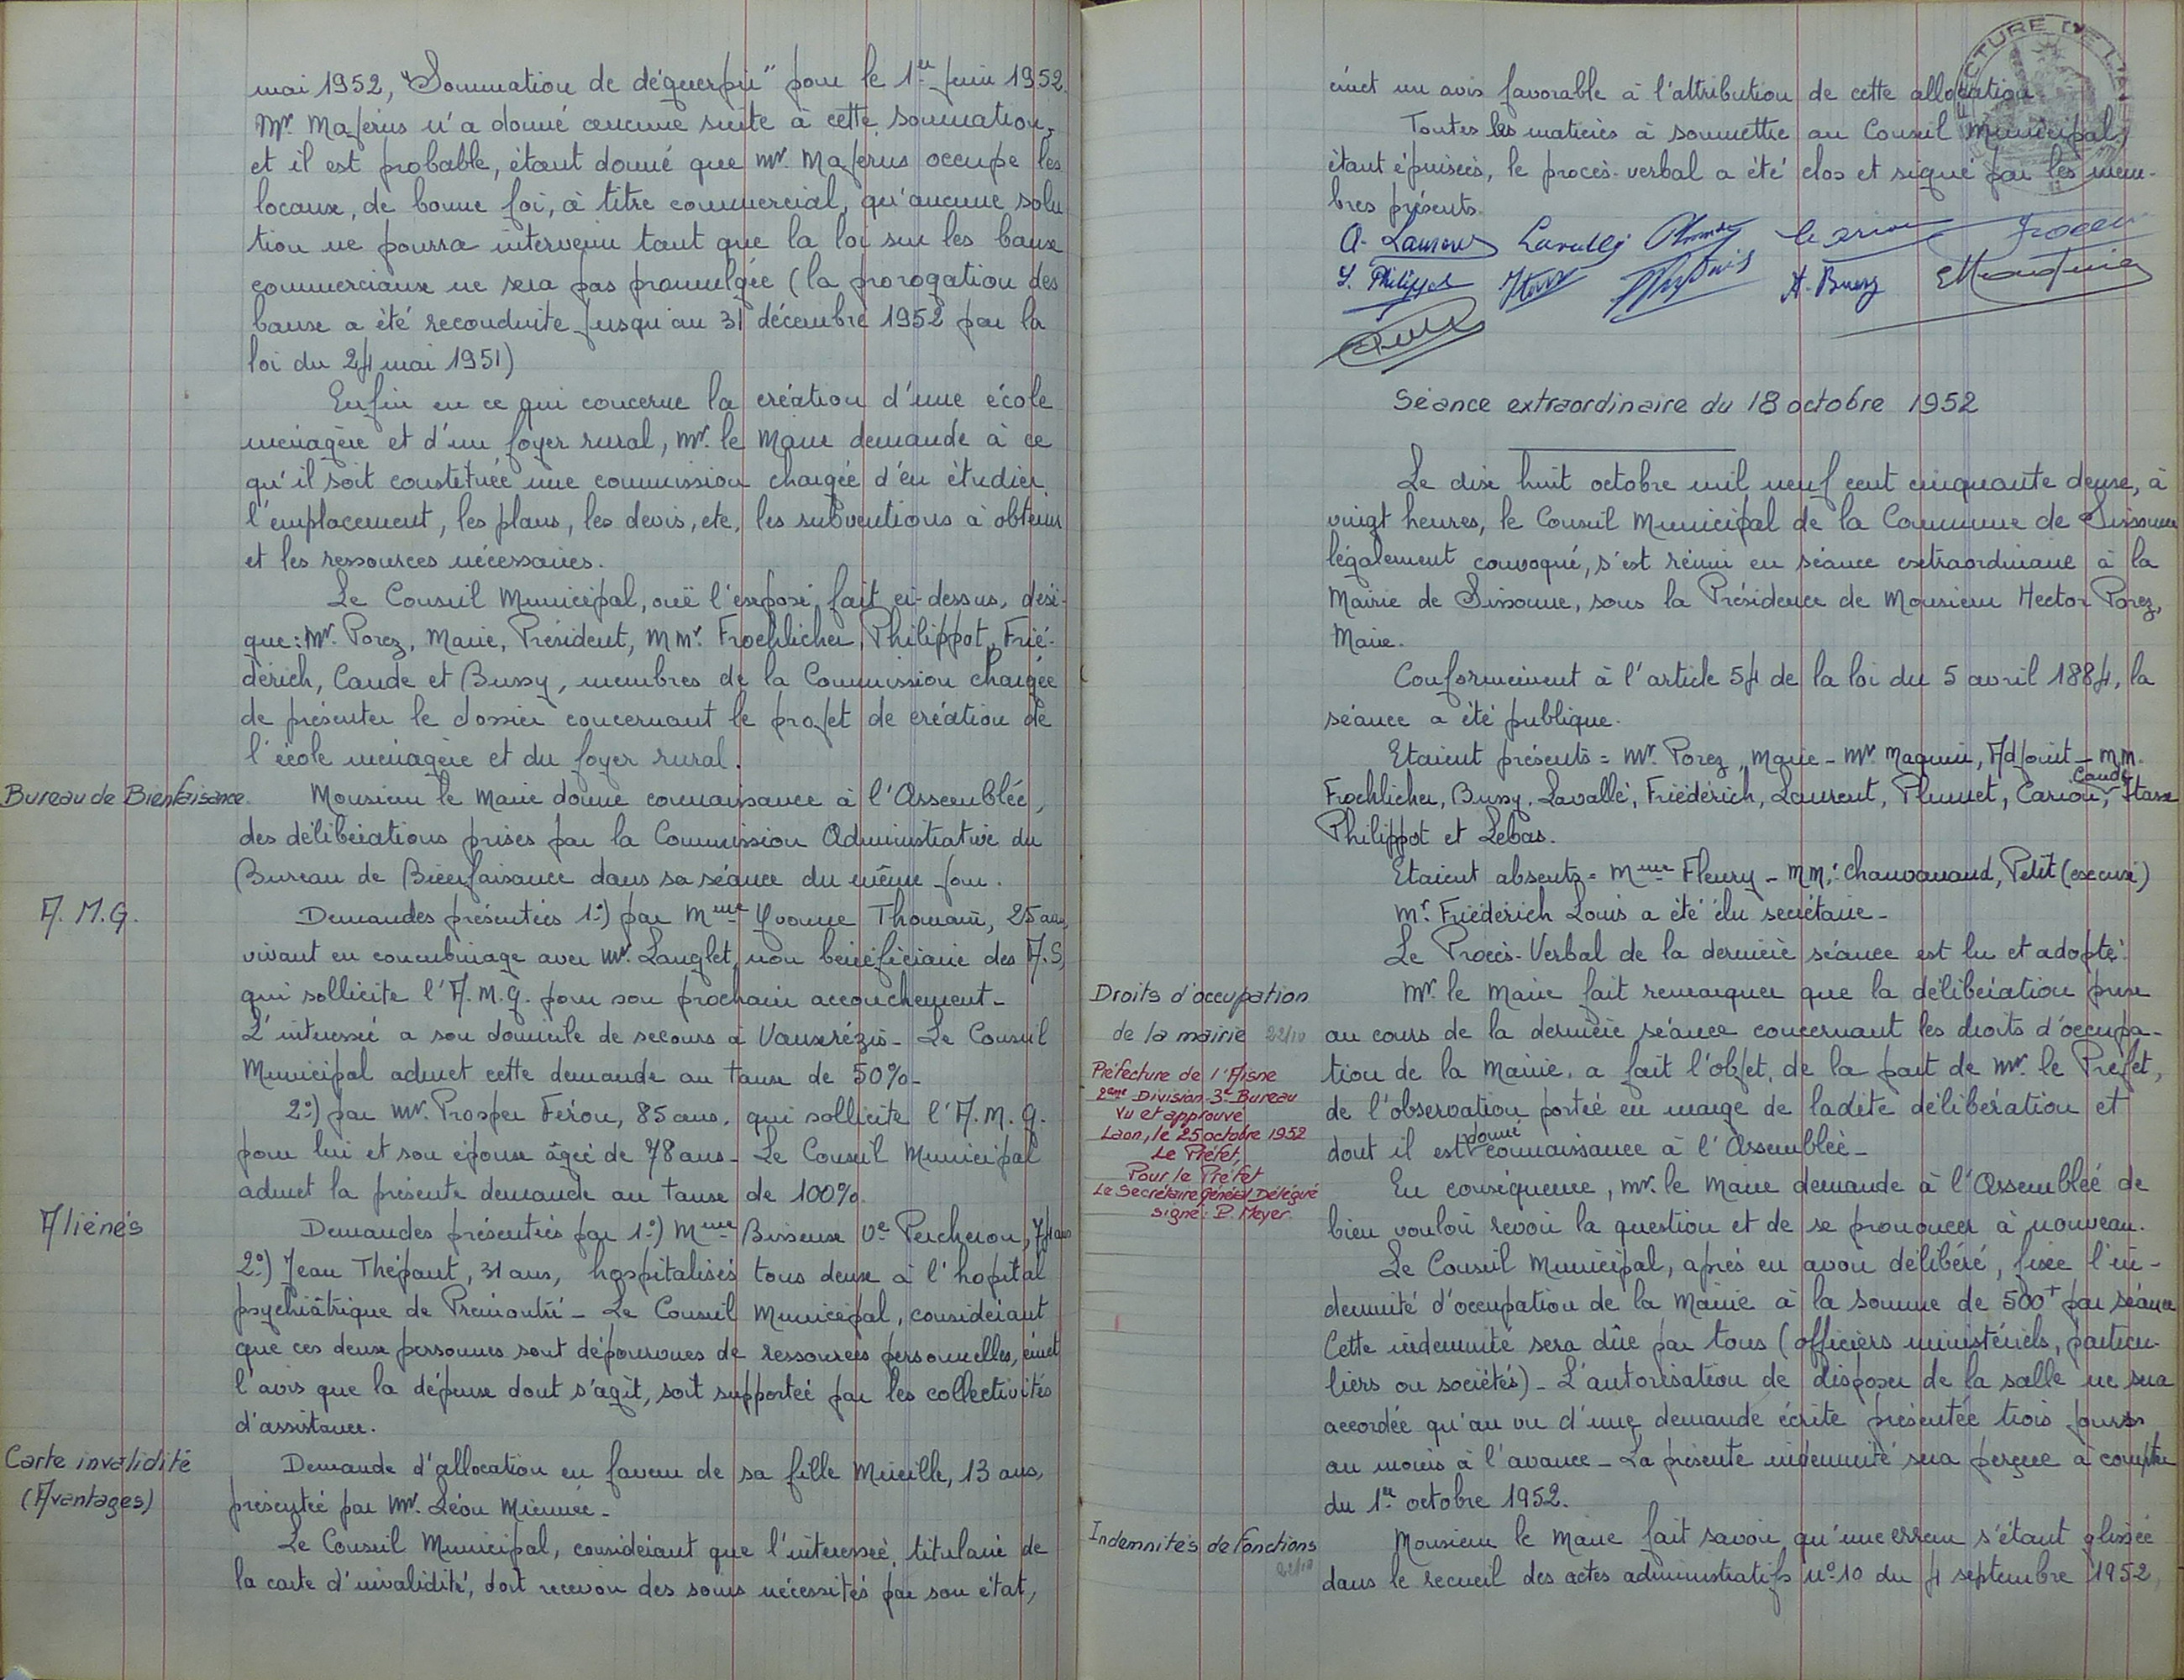 mai 1952, "Sommation de déguerpir" pour le 1er juin 1952.
Mr. Majerus n'a donné aucune suite à cette sommation,
et il est probable, étant donné que Mr. Majerus occupe les
locaux, de bonne foi, à titre commercial, qu'aucune solu
tion ne pourra intervenir tant que la loi sur les baux
commerciaux ne sera pas promulgée (la prorogation des
baux a été reconduite jusqu'au 31 décembre 1952 par la
loi du 24 mai 1951)
Enfin en ce qui concerne la création d'une école
ménagère et d'un foyer rural, Mr. le Maire demande à ce
qu'il soit constituée une commission chargée d'en étudier
l'emplacement, les plans, les devis, etc, les subventions à obtenir
et les ressources nécessaires.
Le Conseil Municipal, ouï l'exposé fait ci-dessus, dési-
gne: Mr. Porez, Maire, Président, MMrs Froehlicher, Philippot, Frié-
dérich, Caude et Bussy, membres de la Commission chargée
de présenter le dossier concernant le projet de création de
l'école ménagère et du foyer rural.
Bureau de Bienfaisance.
Monsieur le Maire donne connaissance à l'Assemblée,
des délibérations prises par la Commission Administrative du
Bureau de Bienfaisance dans sa séance du même jour.
A. M. G.
Demandes présentées 1°) par Mme Yvonne Thomain, 25 ans,
vivant en concubinage avec Mr. Langlet, non bénéficiaire des A.S,
qui sollicite l'A.M.G. pour son prochain accouchement_
L'intéressée a son domicile de secours à Vauxrézis_ Le Conseil
Municipal admet cette demande au taux de 50%_
2°) par Mr. Prosper Feron, 85 ans, qui sollicite l'A.M.G.
pour lui et son épouse âgée de 78 ans_ Le Conseil Municipal
admet la présente demande au taux de 100%.
Aliénés
Demandes présentées par 1°) Mme Bisseux Ve Percheron, 74 ans
2°) Jean Thépaut, 31 ans, hospitalisés tous deux à l'hopital
psychiâtrique de Prémontré_ Le Conseil Municipal, considérant
que ces deux personnes sont dépourvues de ressources personnelles, émet
l'avis que la dépense dont s'agit, soit supportée par les collectivités
d'assistance.
Carte invalidité
(Avantages)
Demande d'allocation en faveur de sa fille Mireille, 13 ans,
présentée par Mr. Léon Miennée_
Le Conseil Municipal, considérant que l'intéressée, titulaire de
la carte d'invalidité, doit recevoir des soins nécessités par son état,
émet un avis favorable à l'attribution de cette allocation.
Toutes les matières à soumettre au Conseil Municipal,
étant épuisées, le procès-verbal a été clos et signé par les mem-
bres présents.
A. Laurent Lavallé
S. Philippot A. Bussy
Séance extraordinaire du 18 octobre 1952
Le dix huit octobre mil neuf cent cinquante deux, à
vingt heures, le Conseil Municipal de la Commune de Sissonne
légalement convoqué, s'est réuni en séance extraordinaire à la
Mairie de Sissonne, sous la Présidence de Monsieur Hector Porez,
Maire.
Conformément à l'article 54 de la loi du 5 avril 1884, la
séance a été publique.
Etaient présents = Mr. Porez, Maire_ Mr. Maquin, Adjoint_ MM.
Froehlicher, Bussy, Lavallé, Friédérich, Laurent, Plumet, Cariou, Caude, Stasse
Philippot et Lebas.
Etaient absents = Mme Fleury_ MM. Chauvanaud, Petit (excusé)
Mr. Friédérich Louis a été élu secrétaire_
Le Procès-Verbal de la dernière séance est lu et adopté.
Droits d'occupation
de la mairie 22/10
Mr. le Maire fait remarquer que la délibération prise
au cours de la dernière séance concernant les droits d'occupa-
tion de la Mairie, a fait l'objet, de la part de Mr. le Préfet,
de l'observation portée en marge de ladite délibération et
dont il est donné connaissance à l'Assemblée_
Préfecture de l'Aisne
2ème Division-3e Bureau
Vu et approuvé
Laon, le 25 octobre 1952
Le Préfet,
Pour le Préfet
Le Secrétaire Général Délégué
signé: P. Meyer.
En conséquence, Mr. le Maire demande à l'Assemblée de
bien vouloir revoir la question et de se prononcer à nouveau.
Le Conseil Municipal, après en avoir délibéré, fixe l'in-
demnité d'occupation de la Mairie à la somme de 500f par séance
Cette indemnité sera dûe par tous (officiers ministériels, particu-
liers ou sociétés)_ L'autorisation de disposer de la salle ne sera
accordée qu'au vu d'une demande écrite présentée trois jours
au moins à l'avance_ La présente indemnité sera perçue à compter
du 1er octobre 1952.
Indemnités de fonctions
22/10
Monsieur le Maire fait savoir qu'une erreur s'étant glissée
dans le recueil des actes administratifs N°10 du 4 septembre 1952,